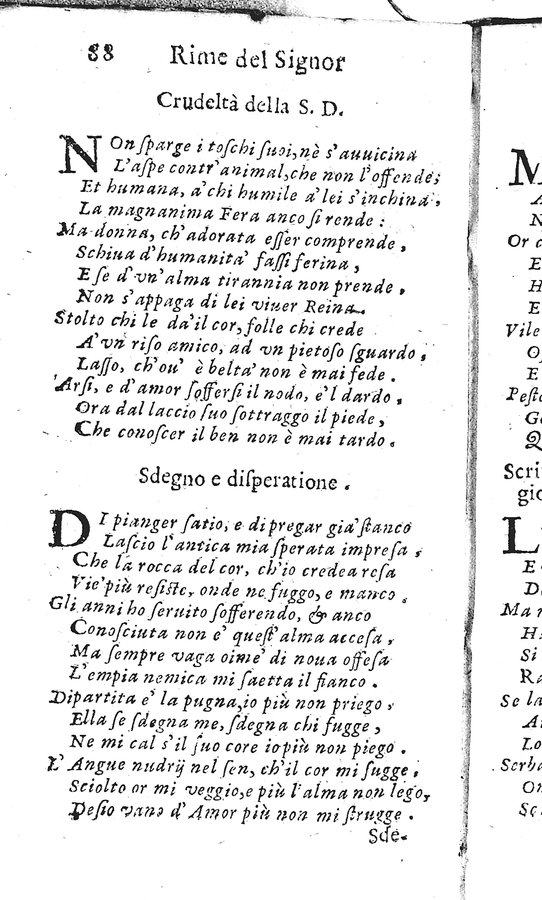 88 Rime del Signor
Crudeltà della S. D.
NOn ſparge i toſchi ſuoi, nè s'auuicina
L'aſpe contr'animal, che non l'offende;
Et humana, a'chi humile a'lei s'inchina,
La magnanima Fera anco ſi rende:
Madonna, ch'adorata eſſer comprende,
Schiua d'humanita' faſſi ferina,
E ſe d'vn'alma tirannia non prende,
Non s'appaga di lei viuer Reina.
Stolto chi le da'il cor, folle chi crede
A'vn riſo amico, ad vn pietoſo ſguardo,
Laſſo, ch'ou' è belta' non è mai fede.
Arſi, e d'amor ſofferſi il nodo, e'l dardo,
Ora dal laccio ſuo ſottraggo il piede,
Che conoſcer il ben non è mai tardo.
Sdegno e diſperatione.
DI pianger ſatio, e di pregar gia' ſtanco
Laſcio l'antica mia ſperata impreſa,
Che la rocca del cor, ch'io credea reſa
Vie' più reſiſte, onde ne fuggo, e manco.
Gli anni ho ſeruito ſofferendo, & anco
Conoſciuta non e' queſt'alma acceſa,
Ma ſempre vaga oime' di noua offeſa
L'empia nemica mi ſaetta il fianco.
Dipartita e' la pugna, io più non priego,
Ella ſe ſdegna me, ſdegna chi fugge,
Ne mi cal s'il ſuo core io più non piego.
L'Angue nudrij nel ſen, ch'il cor mi ſugge,
Sciolto or mi veggio, e più l'alma non lego,
Deſio vano d'Amor più non mi ſtrugge.
Sde-
M
A
N
Or c
E
H
E
Vile
O
E
Peſte
G
Q
Scri
gio
L
E
D
Ma n
H
Si
Ra
Se la
A
Lo
Serba
On
Se